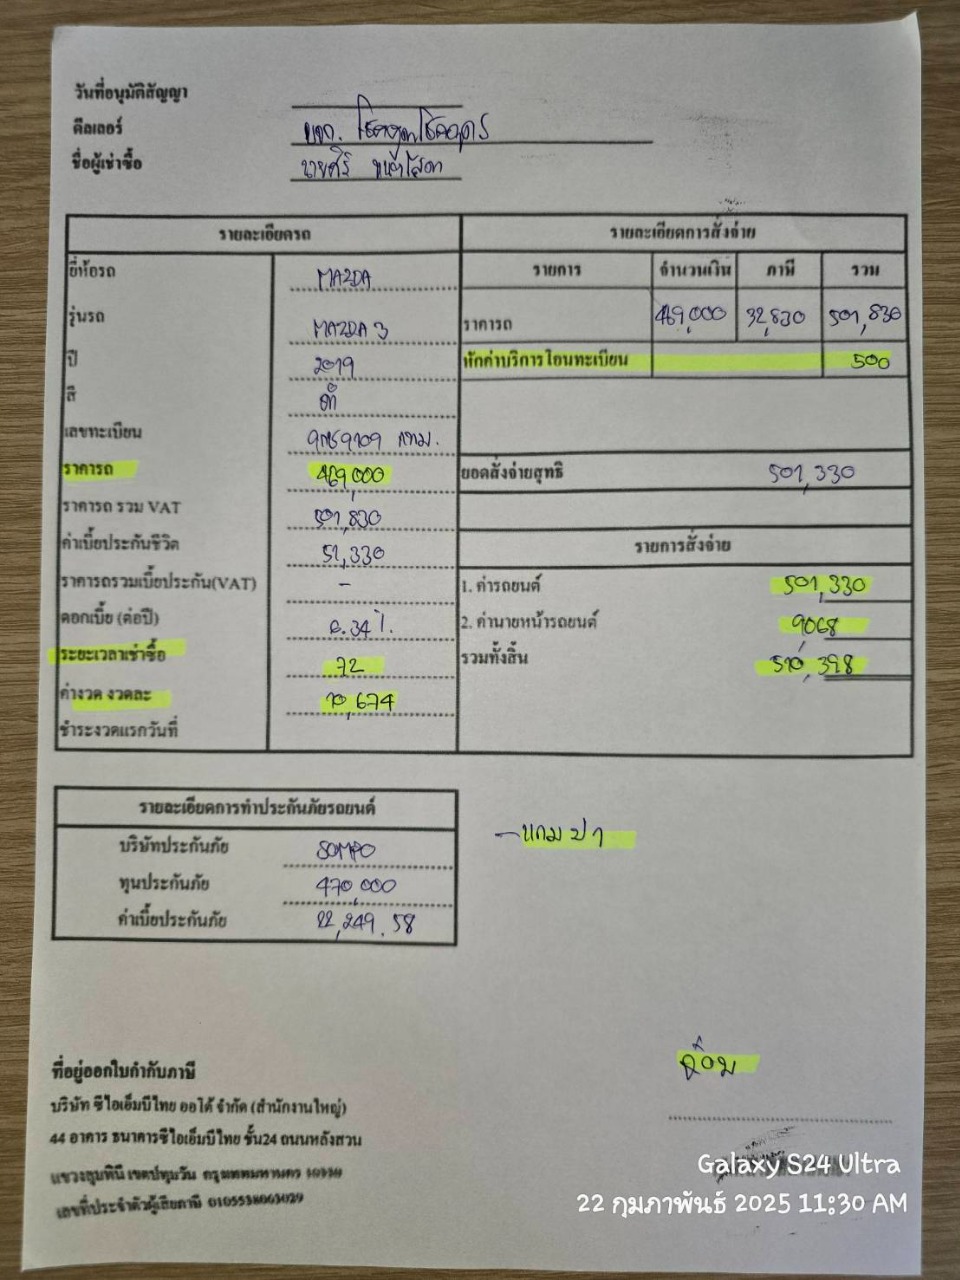 วันที่อนุมัติสัญญา
ดีลเลอร์ หจก.
ชื่อผู้เช่าซื้อ นายศิริ
รายละเอียดรถ
ยี่ห้อรถ MAZDA
รุ่นรถ MAZDA 3
ปี 2019
สี ดำ
เลขทะเบียน กทม.
ราคารถ 469,000
ราคารถ รวม VAT 501,830
ค่าเบี้ยประกันชีวิต 51,330
ราคารถรวมเบี้ยประกัน(VAT) -
ดอกเบี้ย (ต่อปี) 6.34 %
ระยะเวลาเช่าซื้อ 72
ค่างวด งวดละ 10,674
ชำระงวดแรกวันที่
รายละเอียดการสั่งจ่าย
รายการ จำนวนเงิน ภาษี รวม
ราคารถ 469,000 32,830 501,830
หักค่าบริการโอนทะเบียน 500
ยอดสั่งจ่ายสุทธิ 501,330
รายการสั่งจ่าย
1. ค่ารถยนต์ 501,330
2. ค่านายหน้ารถยนต์ 9068
รวมทั้งสิ้น 510,398
รายละเอียดการทำประกันภัยรถยนต์
บริษัทประกันภัย SOMPO
ทุนประกันภัย 470,000
ค่าเบี้ยประกันภัย 22,249.58
- แถม ป1
ที่อยู่ออกใบกำกับภาษี
บริษัท ซีไอเอ็มบีไทย ออโต้ จำกัด (สำนักงานใหญ่)
44 อาคาร ธนาคารซีไอเอ็มบีไทย ชั้น24 ถนนหลังสวน
แขวงลุมพินี เขตปทุมวัน กรุงเทพมหานคร 10330
เลขที่ประจำตัวผู้เสียภาษี 0105538003029
Galaxy S24 Ultra
22 กุมภาพันธ์ 2025 11:30 AM